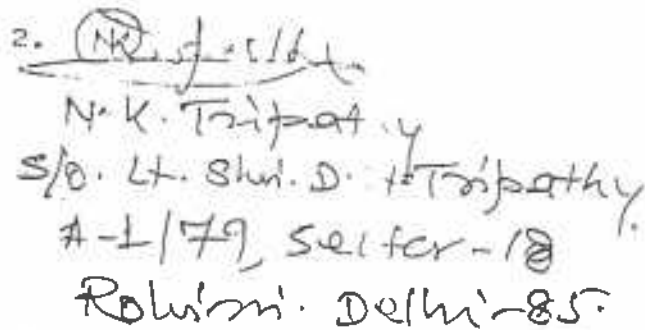 2.
N.K. Tripathy
S/o. Lt. Shri. D. Tripathy.
A-1/79, Sector-18
Rohini. Delhi-85.